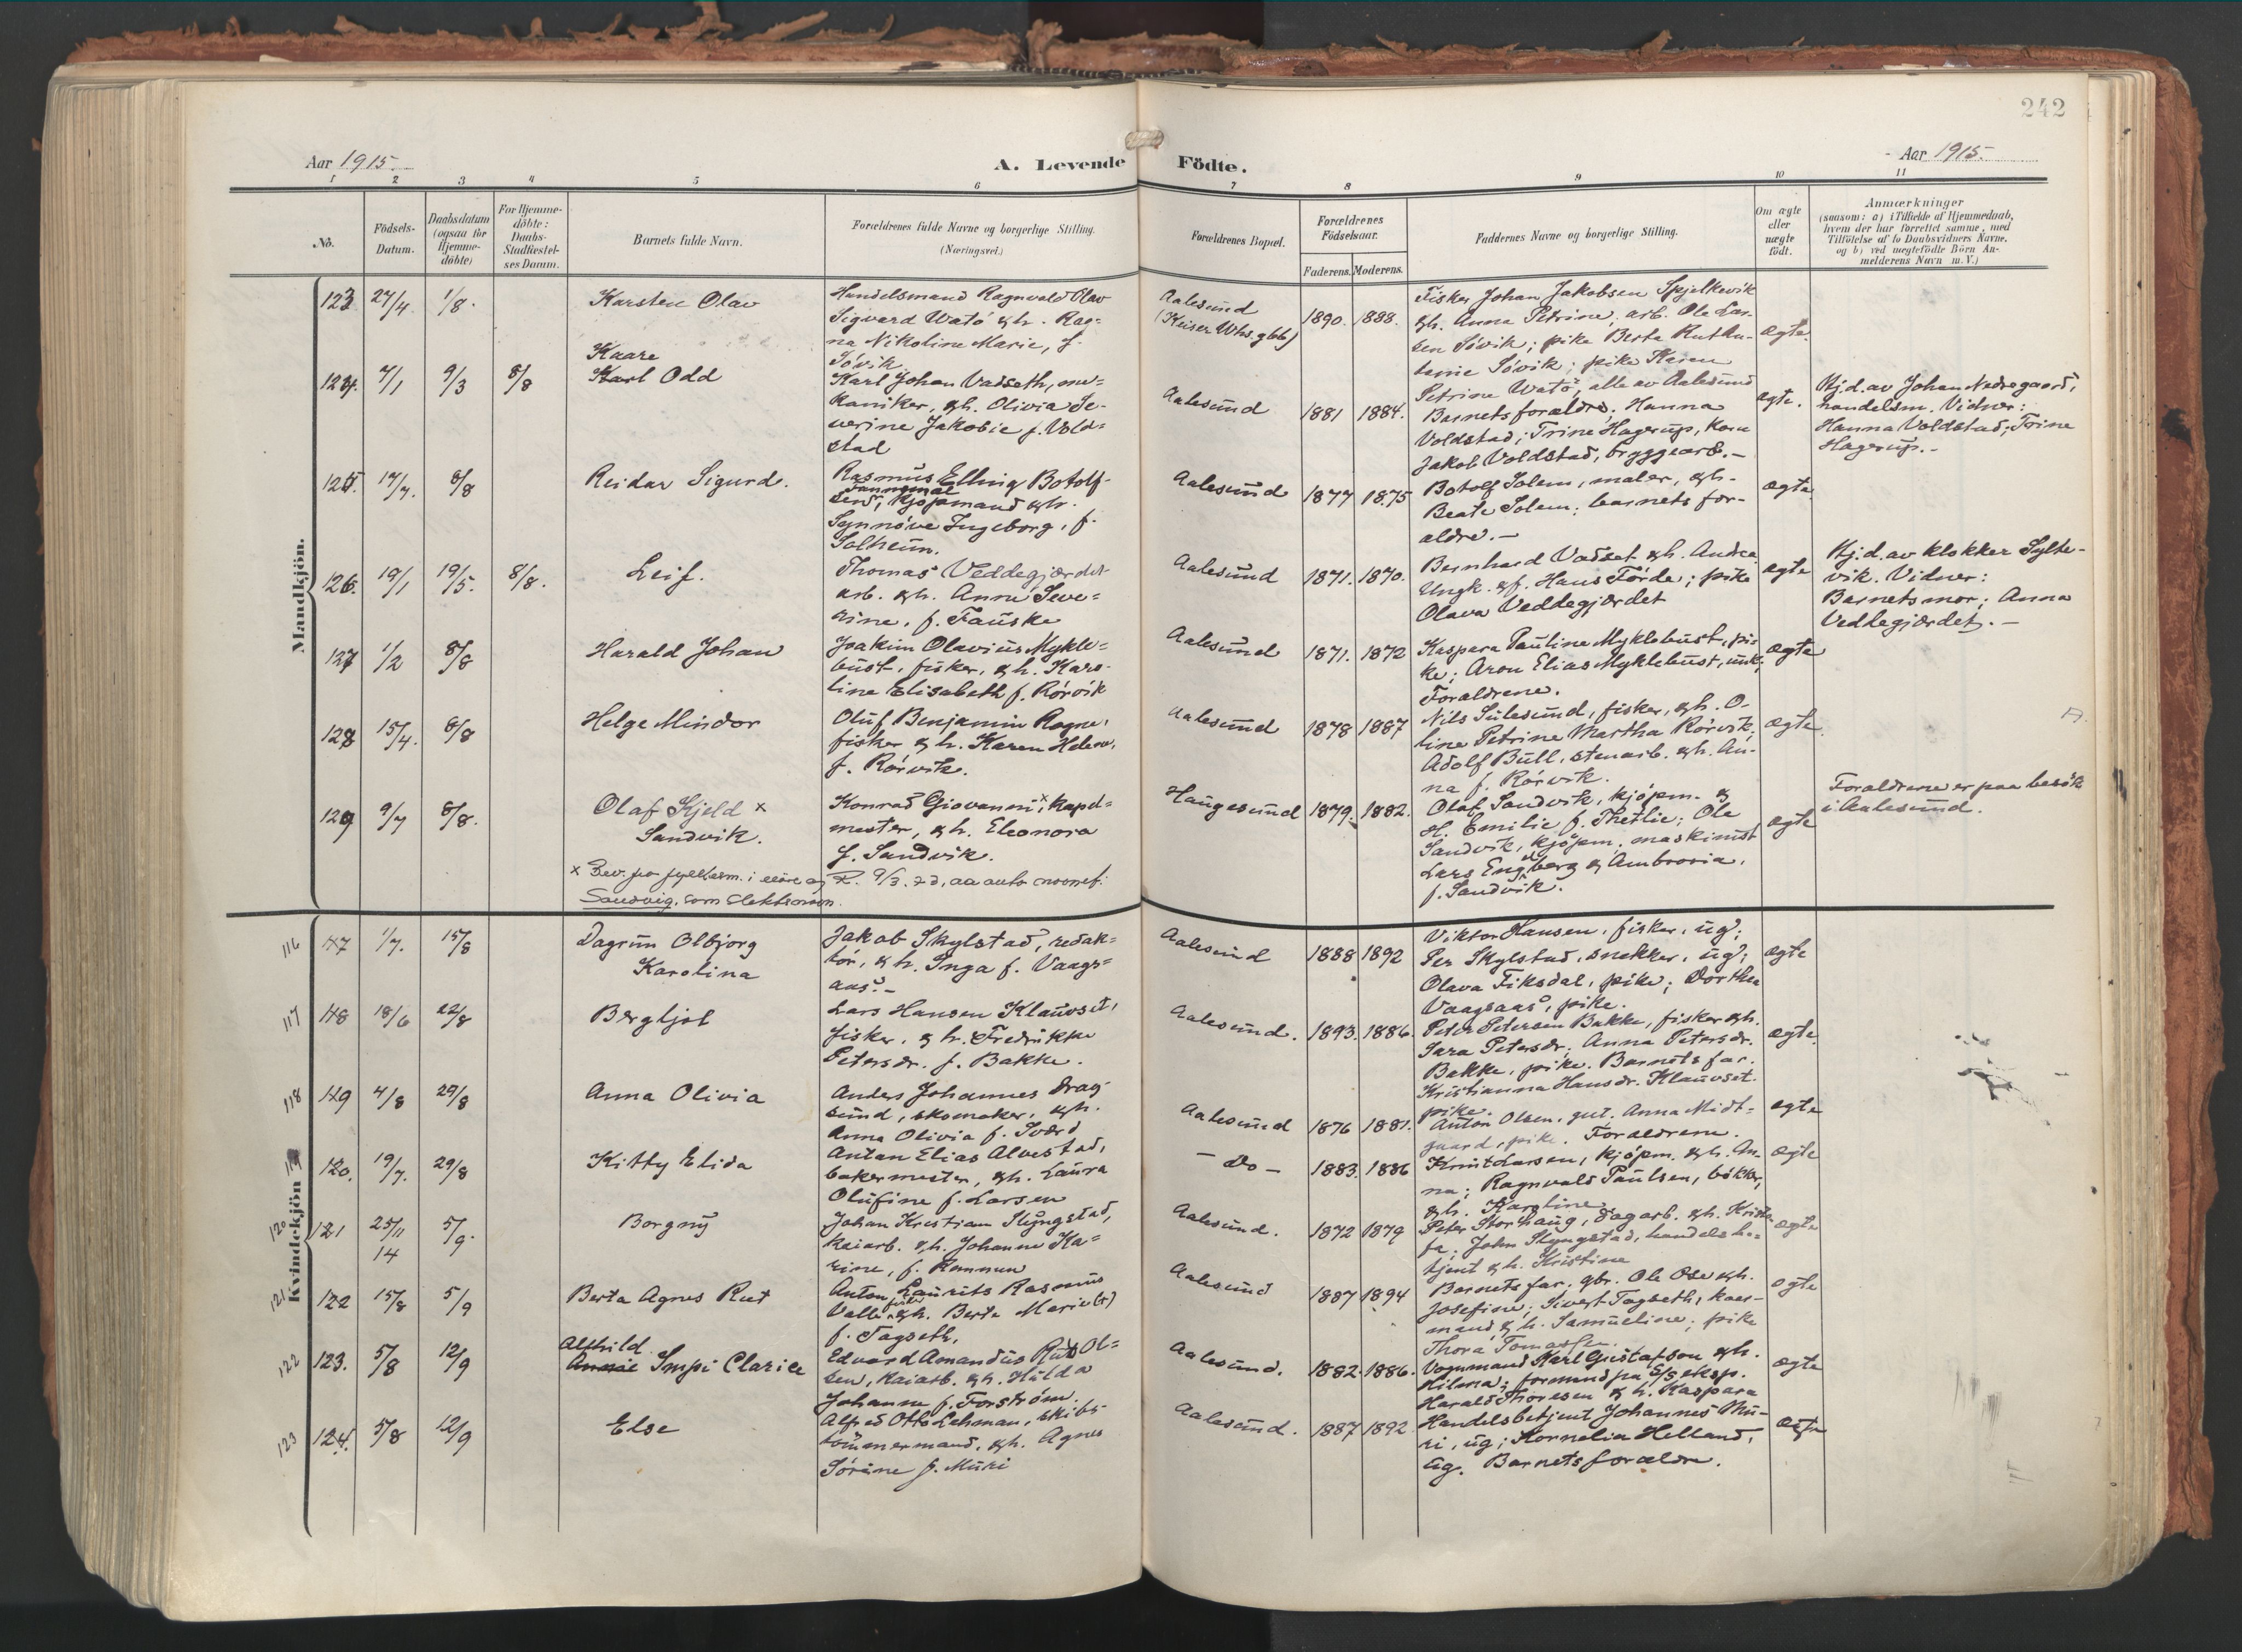 242
Aar 1915.
A. Levende Födte.
Aar 1915.
1 2 3 4 5 6 7 8 9 10 11
No.
Födsels-
Datum.
Daabsdatum
(ogsaa for
Hjemme-
döbte)
For Hjemme-
döbte:
Daabs-
Stadfæstel-
ses Datum.
Barnets fulde Navn.
Forældrenes fulde Navne og borgerlige Stilling.
(Næringsvei.)
Forældrenes Bopæl.
Forældrenes
Födselsaar.
Faderens. Moderens.
Faddernes Navne og borgerlige Stilling.
Om ægte
eller
uægte
födt.
Anmærkninger
(saasom: a) i Tilfælde af Hjemmedaab,
hvem der har forrettet samme, med
Tilföielse af to Daabsvidners Navne,
og b) ved uegtefödte Börn An-
melderens Navn m. V.)
Mandkjön.
123 27/4 1/8. Karsten Olav
Handelsmand Ragnvald Olav
Sigvard Watö & h. Rag=
na Nikoline Marie, f.
Sövik
Aalesund
(Keiser Whs. gt
1890. 1888.
Fisker Johan Jakobsen Spjelkevik
& h. Anna Petrine; arb. Ole Lar-
sen Sövik; pike Berta Ruthu-
Sövik; pike Karen
Petrine Watö, alle av Aalesund
ægte.
124. 7/1 9/3 8/8
Kaare
Karl Odd
Karl Johan Vadseth, me=
kaniker, & h. Olivia Se-
verine Jakobie f. Vold=
stad
Aalesund
1881 1884.
Barnets forældre; Hanna
Voldstad; Trine Hagerup,
Jakob Voldstad, bryggearb. -
ægte.
Hj.d. av Johan Nedregaard,
handelsm. Vidner:
Hanna Voldstad; Trine
Hagerup. -
125. 17/7. 8/8 Reidar Sigurd.
Rasmus Elling Botolf-
sen, kjøpmand & h.
Synnöve Ingeborg, f.
Solheim.
Aalesund
1877 1875
Botolf Solem, maler, & h.
Beate Solem; barnets for-
ældre. -
ægte
126. 19/1 19/5. 8/8. Leif.
Thomas Veddegjærdet
arb. & h. Anne Seve=
rine, f. Fauske
Aalesund
1871. 1870.
Bernhard Vadset & h. Andrea
Ungk. & f. Hans Förde; pike
Olava Veddegjærdet
ægte
Hj.d. av klokker Sylte-
vik. Vidner:
Barnets mor; Anna
Veddegjærdet. -
127 1/2 8/8 Harald Johan
Joakim Olavius Mykle=
bust, fisker, & h. Karo-
line Elisabeth f. Rörvik
Aalesund
1871. 1872
Kaspara Pauline Myklebust, pi-
ke; Aron Elias Myklebust, unk;
Forældrene.
ægte
128 15/4. 8/8 Helge Mindor
Oluf Benjamin Rogne,
fisker & h. Karen Helene,
f. Rörvik.
Aalesund
1878 1887
Nils Sulesund, fisker, & h. O-
line Petrine Martha Rörvik;
Adolf Bull, stenarb. & h. An-
na f. Rörvik.
ægte.
129 9/7 8/8. Olaf Kjeld x
Sandvik.
Konrad Giovanni x, kapel=
mester, & h. Eleonora
f. Sandvik.
Haugesund
1879. 1882.
Olaf Sandvik, kjöpm. &
H. Emilie f. Thetlie; Ole
Sandvik, kjöpm; maskinist
Lars Engberg & Ambrosia,
f. Sandvik.
ægte
Forældrene er paa besök
i Aalesund.
x Bev. fra fylkesm. i
Sandvig, som slektsnavn.
Kvindekjön
116 117 1/7. 15/8 Dagrun Olbjorg
Karolina
Jakob Skylstad, redak=
tör, & h. Inga f. Vaags=
aas. -
Aalesund
1888 1892
Viktor Hansen, fisker, ug;
Per Skylstad, snekker, ug;
Olava Fiksdal, pike; Dorthea
Vaagsaas, pike.
ægte
117 118 18/6 22/8 Bergljot
Lars Hansen Klauset,
fisker, & h. Fredrikke
Petersdr. f. Bakke.
Aalesund.
1893. 1886.
Peter Petersen Bakke, fisker & h.
Sara Petersdr. Anna Petersdr.
Bakke, pike. Barnets far.
Kristianna Hansdr. Klauset.
pike.
ægte.
118 119 4/8 29/8 Anna Olivia
Anders Johannes Drag-
sund, skomaker, & h.
Anna Olivia f. Sværd
Aalesund
1876 1881.
Anton Olsen, gut. Anna Midt=
gaard, pike. Forældrene.
ægte
119 120. 19/7. 29/8 Kitty Elida
Antan Elias Alvestad,
bakermester, & h. Laura
Olufine f. Larsen
- Do -
1883. 1886
Knut Larsen, kjöpm. & h. An-
na; Ragnvald Paulsen, bökker,
& h. Karoline
ægte
120 121 25/11 14 5/9. Borgny
Johan Kristian Slyngstad,
kaiarb. & h. Johanne Ka=
rine, f. Remmen
Aalesund.
1872 1879
Peter Storhaug, dagarb. & h. Krist
fa; John Slyngstad, handelsbe=
tjent & h. Kristine
ægte
121 122 15/8 5/9 Berta Agnes Rut
Anton Laurits Rasmus
Valle, fisker & h. Berte Marie (?)
f. Tagseth.
Aalesund
1887 1894
Barnets far, gbr. Ole Ose & h.
Josefine; Sivert Tagseth, kaar-
mand, & h. Samueline; pike
Thora Tomassen.
ægte
122 123. 5/8 12/9
Alfhild
Impi Clarice
Edvard Amandus Rut Ol=
sen, kaiarb. & h. Hulda
Johanne f. Forström.
Aalesund.
1882. 1886.
Vognmand Karl Gustafson & h.
Hilma; formand pa S/S eksp.
Harald Thoresen & h. Kaspara
ægte
123 124. 5/8 12/9 Else
Alfred Otto Lehman, skibs-
tömmermand, & h. Agnes
Sörine f. Muri
Aalesund.
1887 1892
Handelsbetjent Johannes Mu-
ri, ug; Kornelia Helland,
ug. Barnets forældre.
ægte